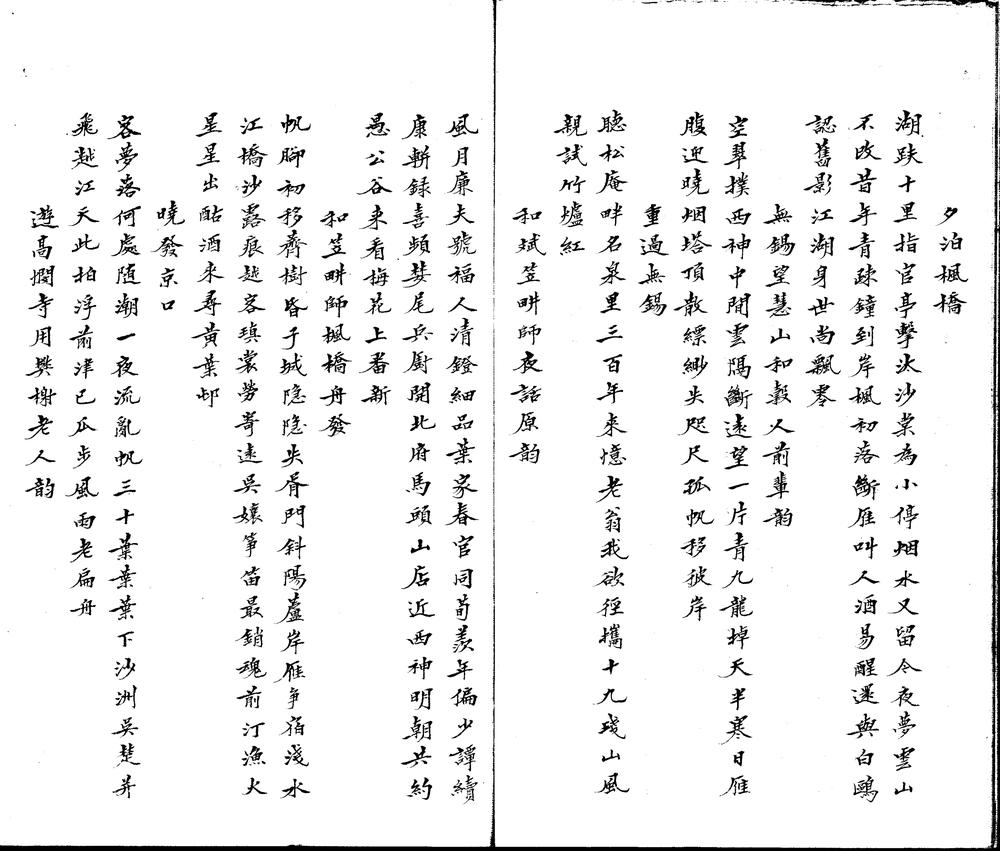 夕泊楓橋
湖趺十里指官亭擊汰沙棠為小停烟水又留今夜夢雲山
不改昔年青踈鐘到岸楓初落斷雁叫人酒易醒還與白鷗
認舊影江湖身世尚飄零
無錫望慧山和縠人前輩韵
空翠撲西神中間雲隔斷遠望一片青九龍掉天半寒日雁
腹迎曉烟塔頂散縹緲失咫尺孤帆移彼岸
重過無錫
聽松庵畔名泉里三百年來憶老翁我欲徑攜十九殘山風
親試竹爐紅
和斌笠畊師夜話原韵
風月廉夫號福人清鐙細品葉家春官同荀羨年偏少譚續
康騈録喜頻婪尾兵廚開北府馬頭山店近西神明朝共約
愚公谷来看梅花上番新
和笠畊師楓橋舟發
帆腳初移薺樹昏子城隐隐失胥門斜陽蘆岸雁争宿淺水
江橋沙露痕越客瑱裳勞寄遠吳孃箏笛最銷魂前汀漁火
星星出酤酒来尋黄葉邨
曉發京口
客夢落何處随潮一夜流亂帆三十葉葉葉下沙洲吳楚并
飛越江天此拍浮前津已瓜步風雨老扁舟
遊高旻寺用樊榭老人韵